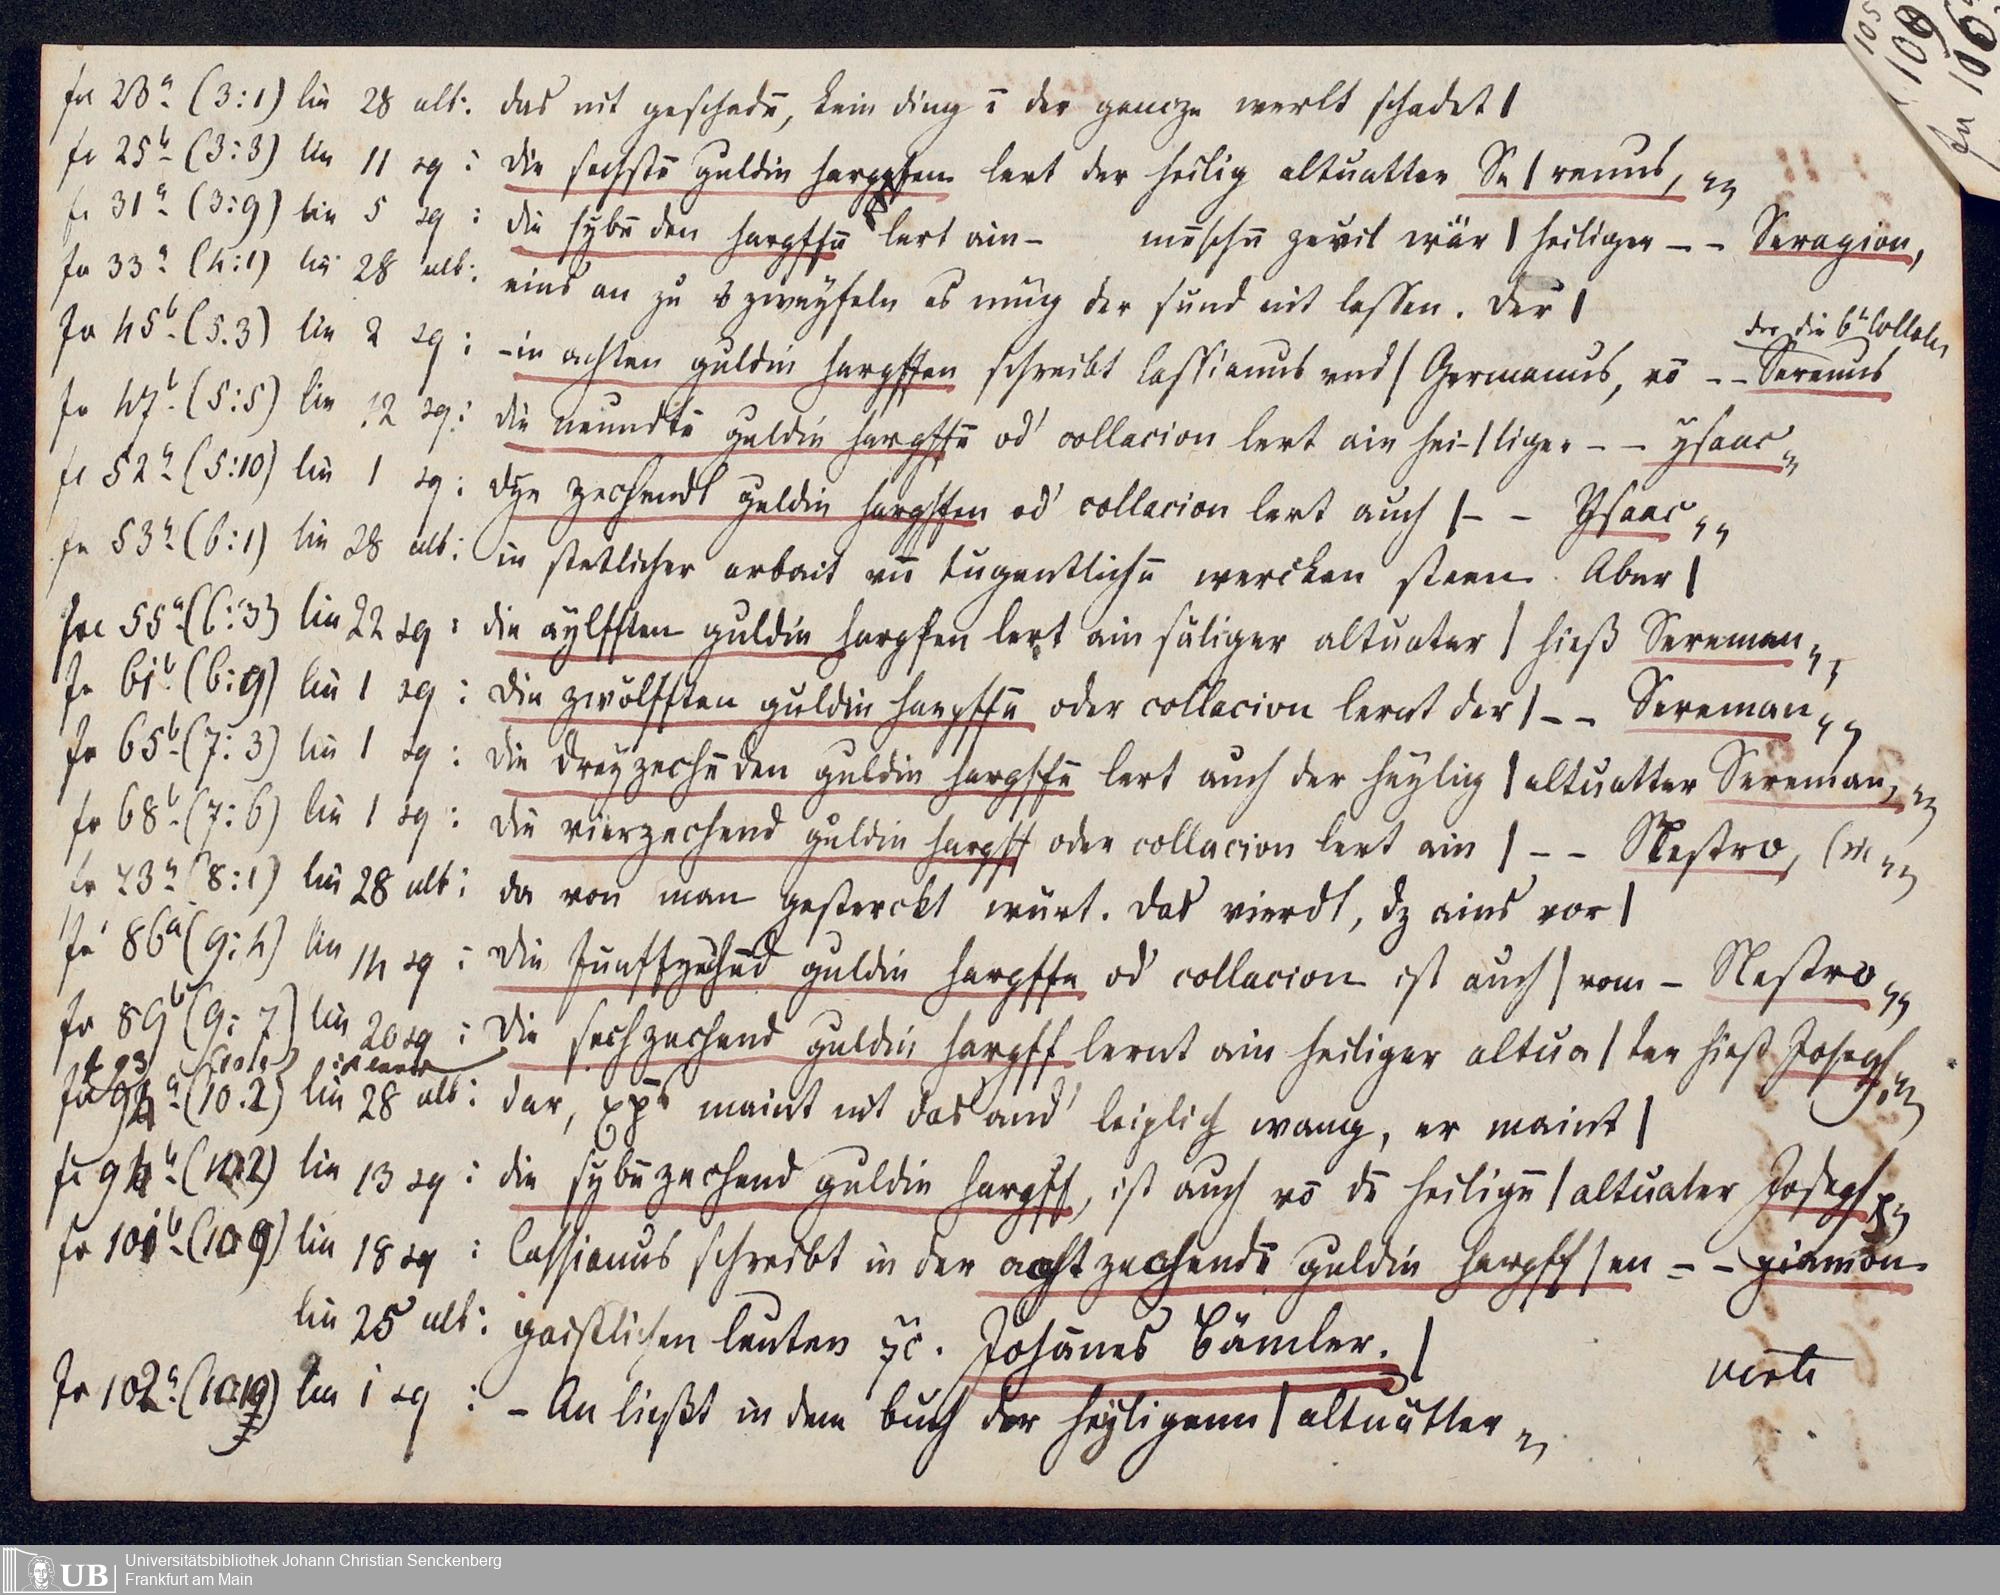 fo 23ª (3:1) lin 28 ult: das nit geschadē, kein ding ī der gancze werlt schadet |
fo 25ᵇ (3:3) lin 11 sq: die sechstē guldin harpffen lert der heilig altuatter Se | renus,
fo 31ª (3:9) lin 5 sq: die sybē den harpffē lert ain – mēschē zevil wär | heiliger – – Serapion,
fo 33ª (4:1) lin 28 ult: eins an zu zweyfeln es müg der sund nit lassen. Der |
fo 45ᵇ (5.3) lin 2 sq: –in achten guldin harpffen schreibt Cassianus vnd | Germanus, vō – – Serenus
fo 47ᵇ (5:5) lin 12 sq: die neundtē guldin harpffē od' collacion lert ain hei- | liger – – ysaac
fo 52ª (5:10) lin 1 sq: dye zechendt guldin harpffen od' collacion lert auch | – – Ysaac
fo 53ª (6:1) lin 28 ult: in stetlicher arbait vñ tugentlichē wercken steen. Aber |
fo 55ª (6:3) lin 22 sq: die aylfften guldin harpfen lert ain säliger altuater | hieß Sereman
fo 61ᵇ (6:9) lin 1 sq: die zwölfften guldin harpffē oder collacion lernt der | – – Sereman
fo 65ᵇ (7:3) lin 1 sq: die dreyzechēden guldin harpffē lert auch der heylig | altuatter Sereman,
fo 68ᵇ (7:6) lin 1 sq: die vierzechend guldin harpff oder collacion lert ain | – – Nestro,
fo 73ª (8:1) lin 28 ult: da von man gesterckt würt. Das vierdt, dz ains vor |
fo 86ª (9:4) lin 14 sq: Die funffzechēd guldin harpffe od' collacion ist auch | vom – Nestro
fo 89ᵇ (9:7) lin 20 sq: Die sechzechend guldin harpff lernt ain heiliger altua | ter hieß Joseph
fo 94ª (10:2) lin 28 ult: dar, xp̄s maint nit das and' leiplich wang, er maint |
fo 94ᵇ (10:2) lin 13 sq: die sybēzechend guldin harpff, ist auch vō dē heiligē | altuater Joseph
fo 101ᵇ (10:9) lin 18 sq: Cassianus schreibt in der achtzechendē guldin harpff | en – – piamon
lin 25 ult: gaistlichen leuten ⁊c. Johānes Bämler. |
verte
fo 102ª (10:10) lin 1 sq: –An ließt in dem buch der heyligenn | altuätter
Universitätsbibliothek Johann Christian Senckenberg
UB Frankfurt am Main